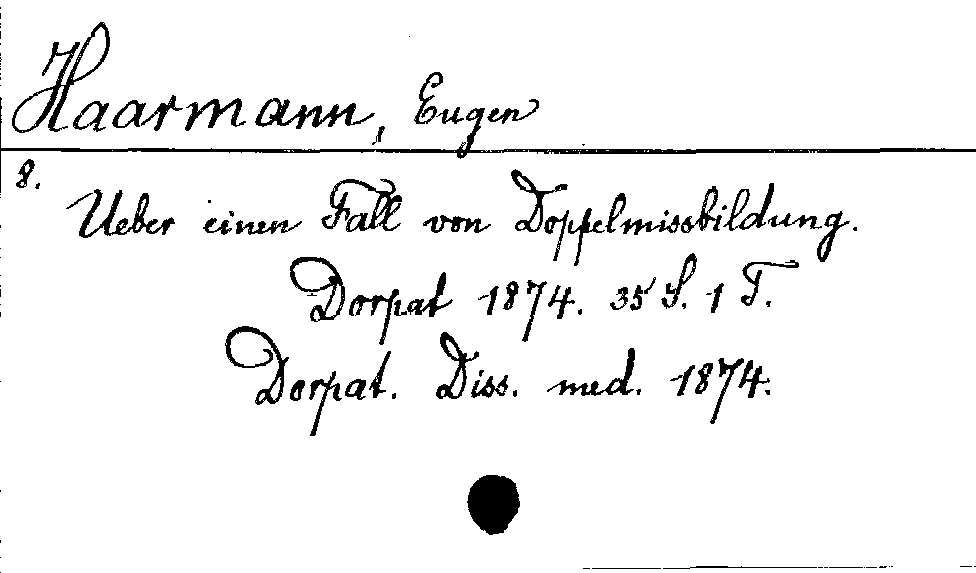 Haarmann, Eugen
8.
Ueber einen Fall von Doppelmissbildung.
Dorpat 1874. 35 S. 1 T.
Dorpat. Diss. med. 1874.